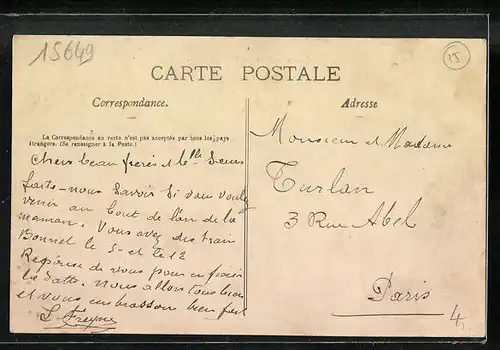 15649
15
CARTE POSTALE
Correspondance.
Adresse
La Correspondance au recto n'est pas acceptée par tous les pays
étrangers. (Se renseigner à la Poste.)
Chers beau frères et Belle Sœurs
faite-nous Savoir Si vous voulez
venir au bout de l'an de la
maman. Vous avez des train
Bonnet le 5 et le 12
Réponse de vous pour en fixer
la datte. Nous allons tous bien
et vous embrassons bien fort
Monsieur et Madame
Turlan
3 Rue Abel
Paris
4